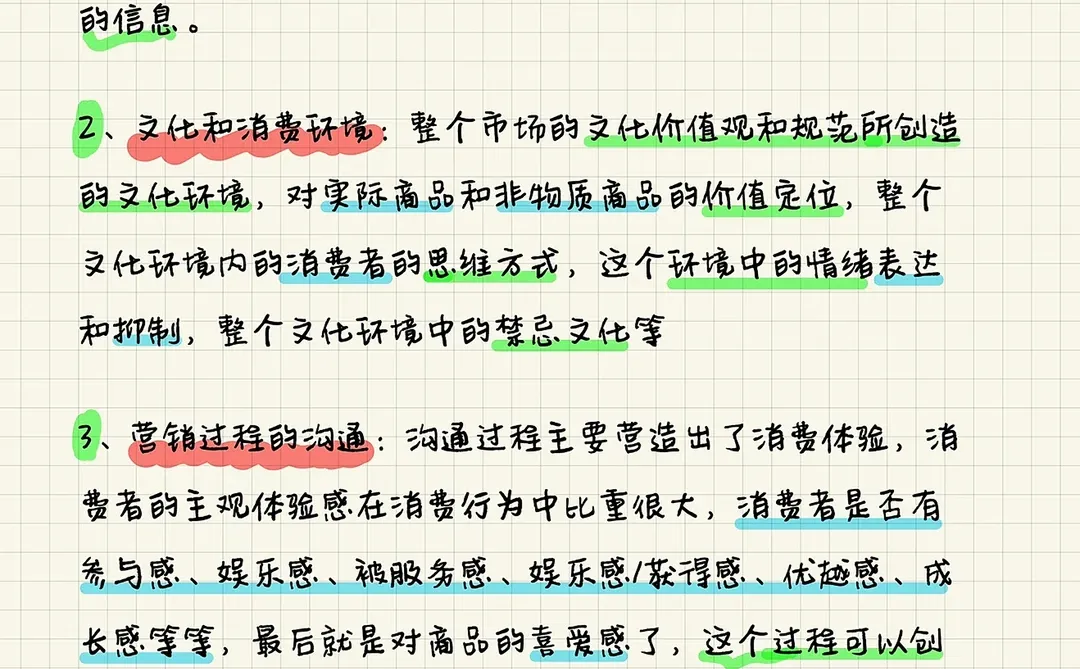 的信息。
2、文化和消费环境：整个市场的文化价值观和规范所创造
的文化环境，对实际商品和非物质商品的价值定位，整个
文化环境内的消费者的思维方式，这个环境中的情绪表达
和抑制，整个文化环境中的禁忌文化等
3、营销过程的沟通：沟通过程主要营造出了消费体验，消
费者的主观体验感在消费行为中比重很大，消费者是否有
参与感、娱乐感、被服务感、娱乐感/获得感、优越感、成
长感等等，最后就是对商品的喜爱感了，这个过程可以创